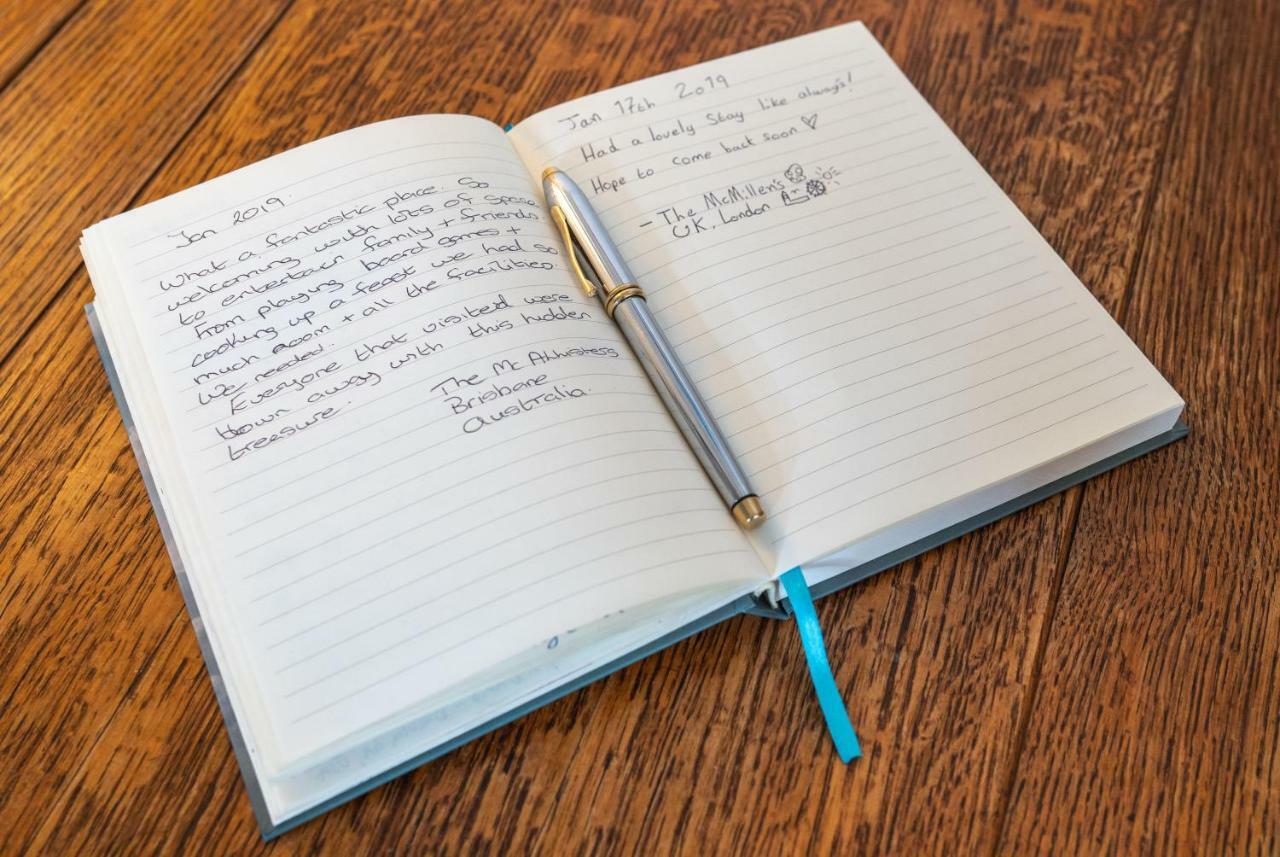 Jan 2019.
What a fantastic place. So
welcoming with lots of space
to entertain family + friends.
From playing board games +
cooking up a feast we had so
much room + all the facilities
we needed.
Everyone that visited were
blown away with this hidden
treasure.
The Mc Allisters
Brisbane
Australia.
Jan 17th 2019
Had a lovely stay like always!
Hope to come back soon ♡
- The McMillen's
UK, London